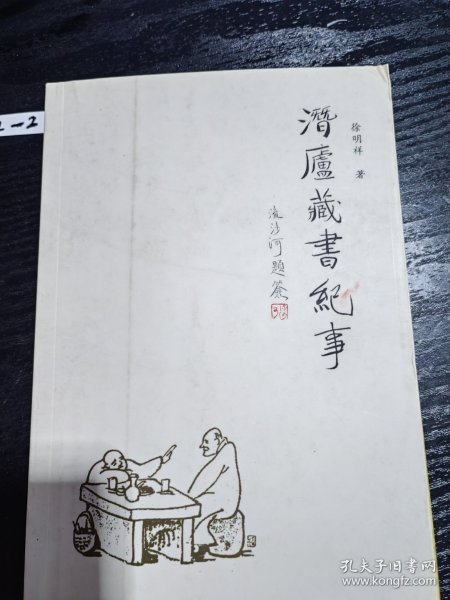 潛廬藏書紀事
徐明祥 著
流沙河題簽
2-2
孔夫子旧书网
www.kongfz.com